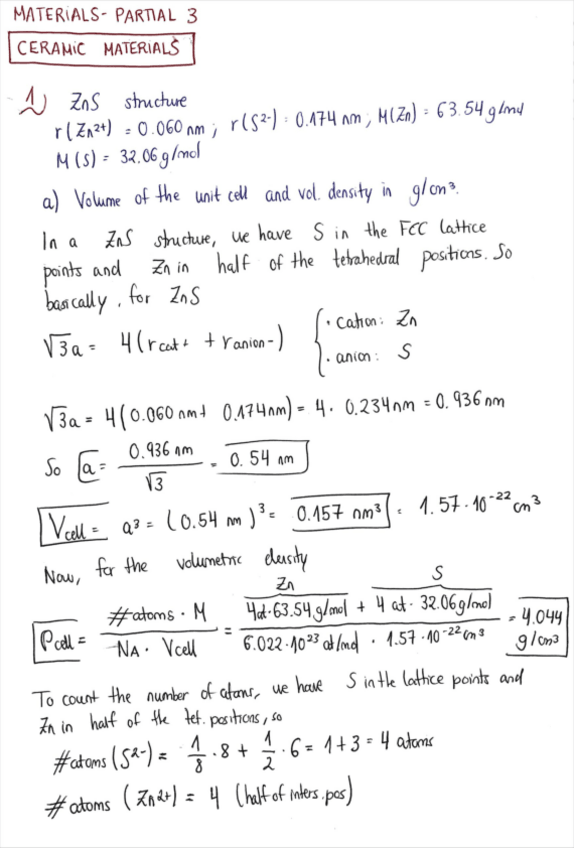 MATERIALS- PARTIAL 3
CERAMIC MATERIALS
1) ZnS structure
r(Zn2+) = 0.060 nm ; r(S2-) : 0.174 nm ; M(Zn) = 63.54 g/mol
M(S) = 32.06 g/mol
a) Volume of the unit cell and vol. density in g/cm³.
In a ZnS structure, we have S in the FCC lattice
points and Zn in half of the tetrahedral positions. So
basically, for ZnS
√3a = 4(rcat+ + ranion-) { · cation: Zn
· anion: S
√3a = 4(0.060 nm + 0.174nm) = 4 · 0.234nm = 0.936 nm
So a = 0.936 nm / √3 = 0.54 nm
Vcell = a³ = (0.54 nm)³ = 0.157 nm³ = 1.57·10⁻²² cm³
Now, for the volumetric density
Zn S
ρcell = #atoms · M / NA · Vcell = 4at·63.54g/mol + 4 at · 32.06g/mol / 6.022·10²³ at/mol · 1.57·10⁻²² cm³ = 4.044 g/cm³
To count the number of atoms, we have S in the lattice points and
Zn in half of the tet. positions, so
#atoms (S²⁻) = 1/8 · 8 + 1/2 · 6 = 1 + 3 = 4 atoms
# atoms (Zn2+) = 4 (half of inters. pos)